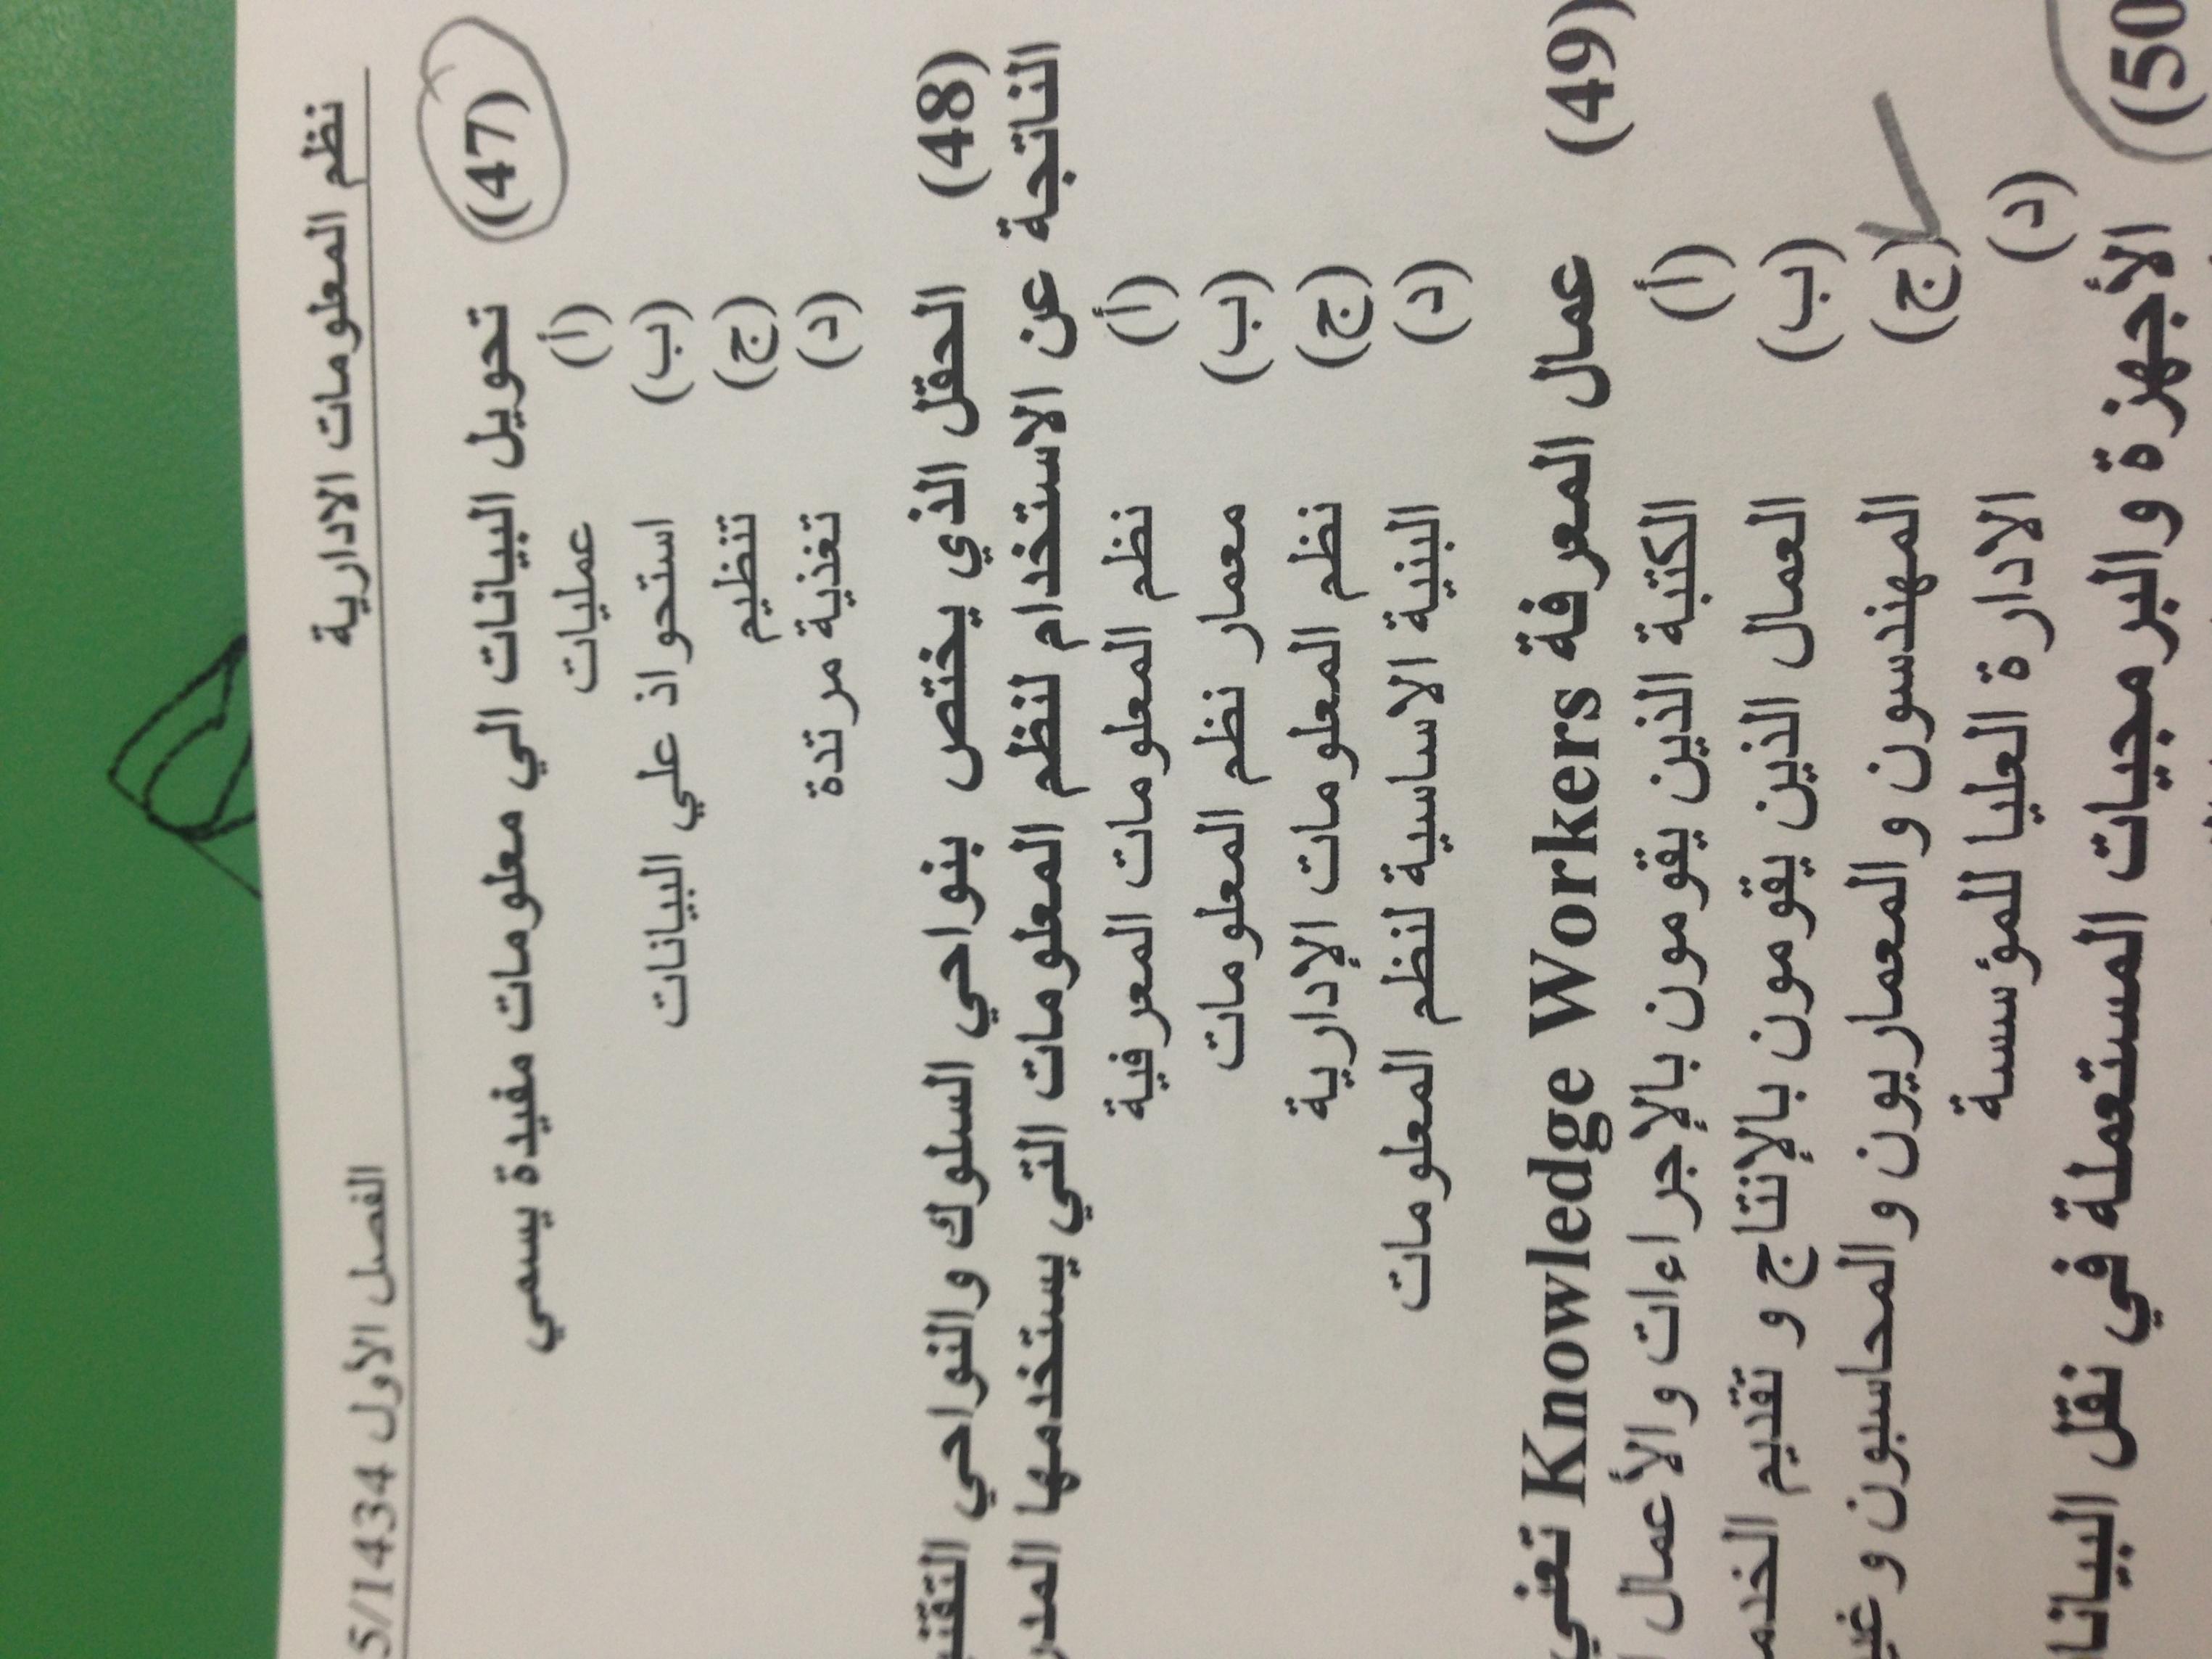 نظم المعلومات الادارية الفصل الأول 5/1434
(47) تحويل البيانات الي معلومات مفيدة يسمي
(أ) عمليات
(ب) استحواذ علي البيانات
(ج) تنظيم
(د) تغذية مرتدة
(48) الحقل الذي يختص بنواحي السلوك والنواحي
الناتجة عن الاستخدام لنظم المعلومات التي يستخدمها
(أ) نظم المعلومات المعرفية
(ب) معمار نظم المعلومات
(ج) نظم المعلومات الإدارية
(د) البنية الاساسية لنظم المعلومات
(49) عمال المعرفة Knowledge Workers تعني
(أ) الكتبة الذين يقومون بالإجراءات والأعمال
(ب) العمال الذين يقومون بالإنتاج و تقديم
(ج) المهندسون و المعماريون و المحاسبون و
(د) الادارة العليا للمؤسسة
(50 الأجهزة والبرمجيات المستعملة في نقل